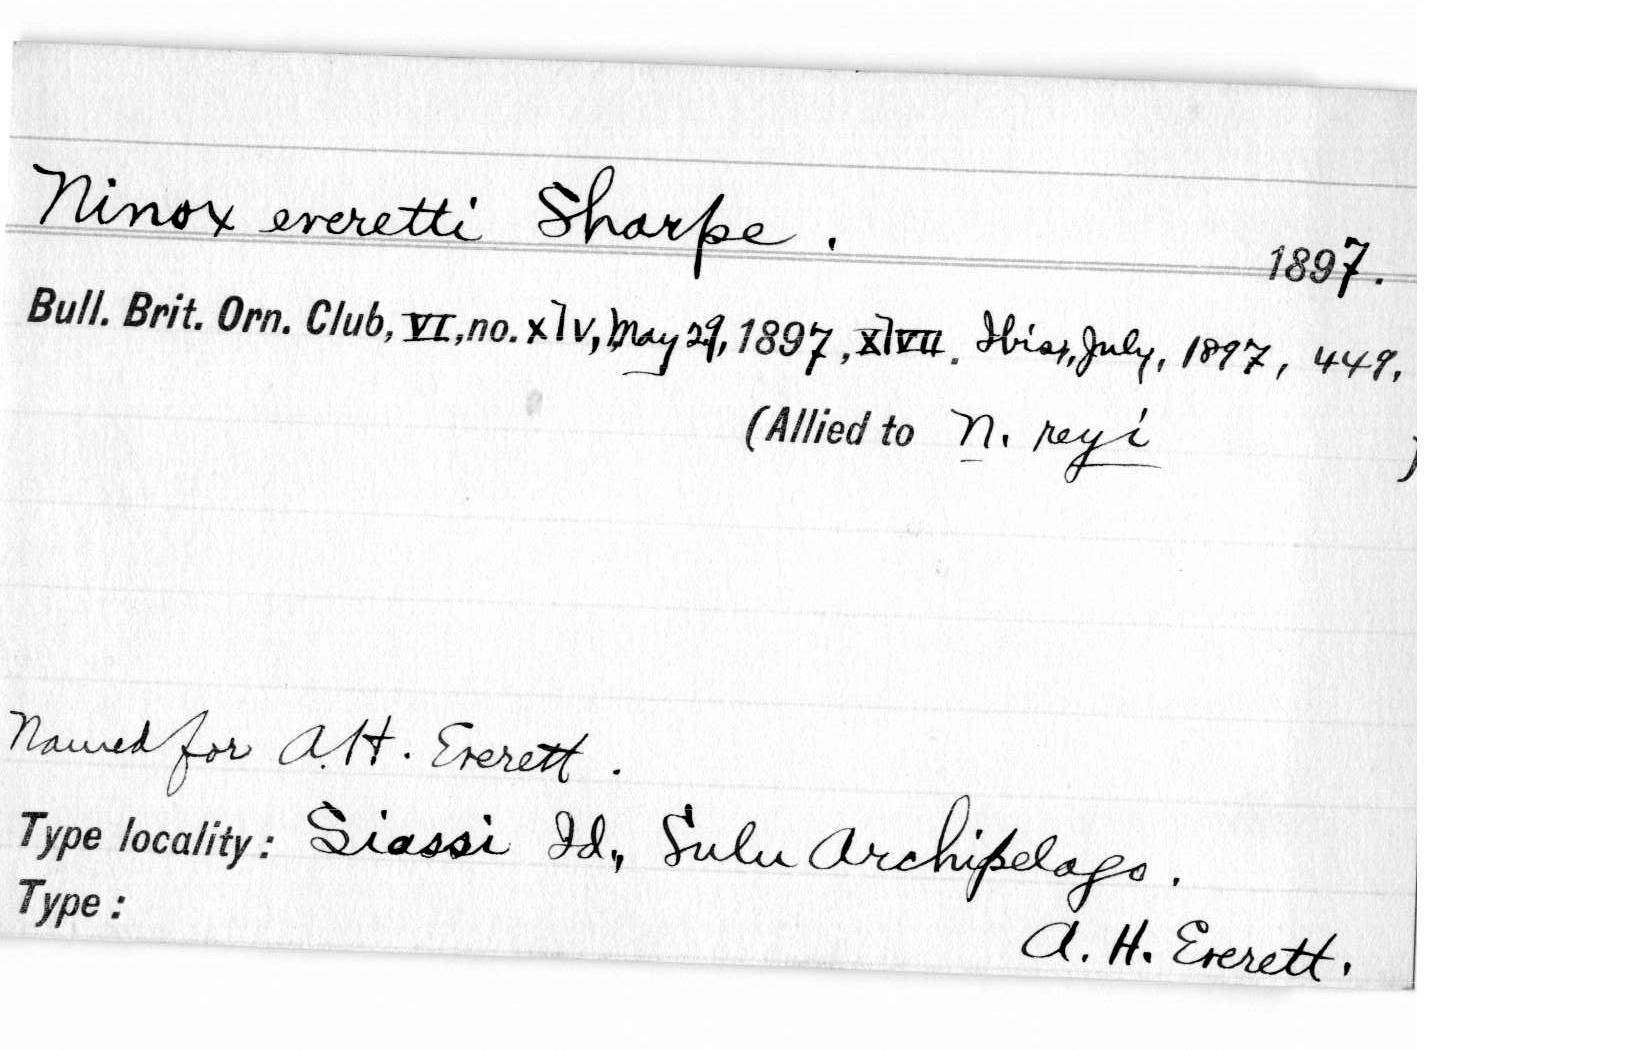 Ninox everetti Sharpe.
1897.
Bull. Brit. Orn. Club, VI, no. xlv, May 29, 1897, xlvii. Ibis, July, 1897, 449.
(Allied to N. reyi )
Named for A. H. Everett.
Type locality: Siassi Id., Sulu Archipelago.
Type:
A. H. Everett.